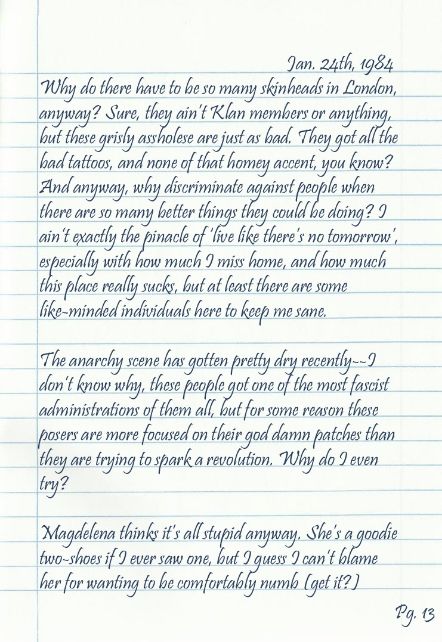 Jan. 24th, 1984
Why do there have to be so many skinheads in London,
anyway? Sure, they ain't Klan members or anything,
but these grisly assholese are just as bad. They got all the
bad tattoos, and none of that homey accent, you know?
And anyway, why discriminate against people when
there are so many better things they could be doing? I
ain't exactly the pinacle of 'live like there's no tomorrow',
especially with how much I miss home, and how much
this place really sucks, but at least there are some
like-minded individuals here to keep me sane.
The anarchy scene has gotten pretty dry recently--I
don't know why, these people got one of the most fascist
administrations of them all, but for some reason these
posers are more focused on their god damn patches than
they are trying to spark a revolution. Why do I even
try?
Magdelena thinks it's all stupid anyway. She's a goodie
two-shoes if I ever saw one, but I guess I can't blame
her for wanting to be comfortably numb (get it?)
Pg. 13